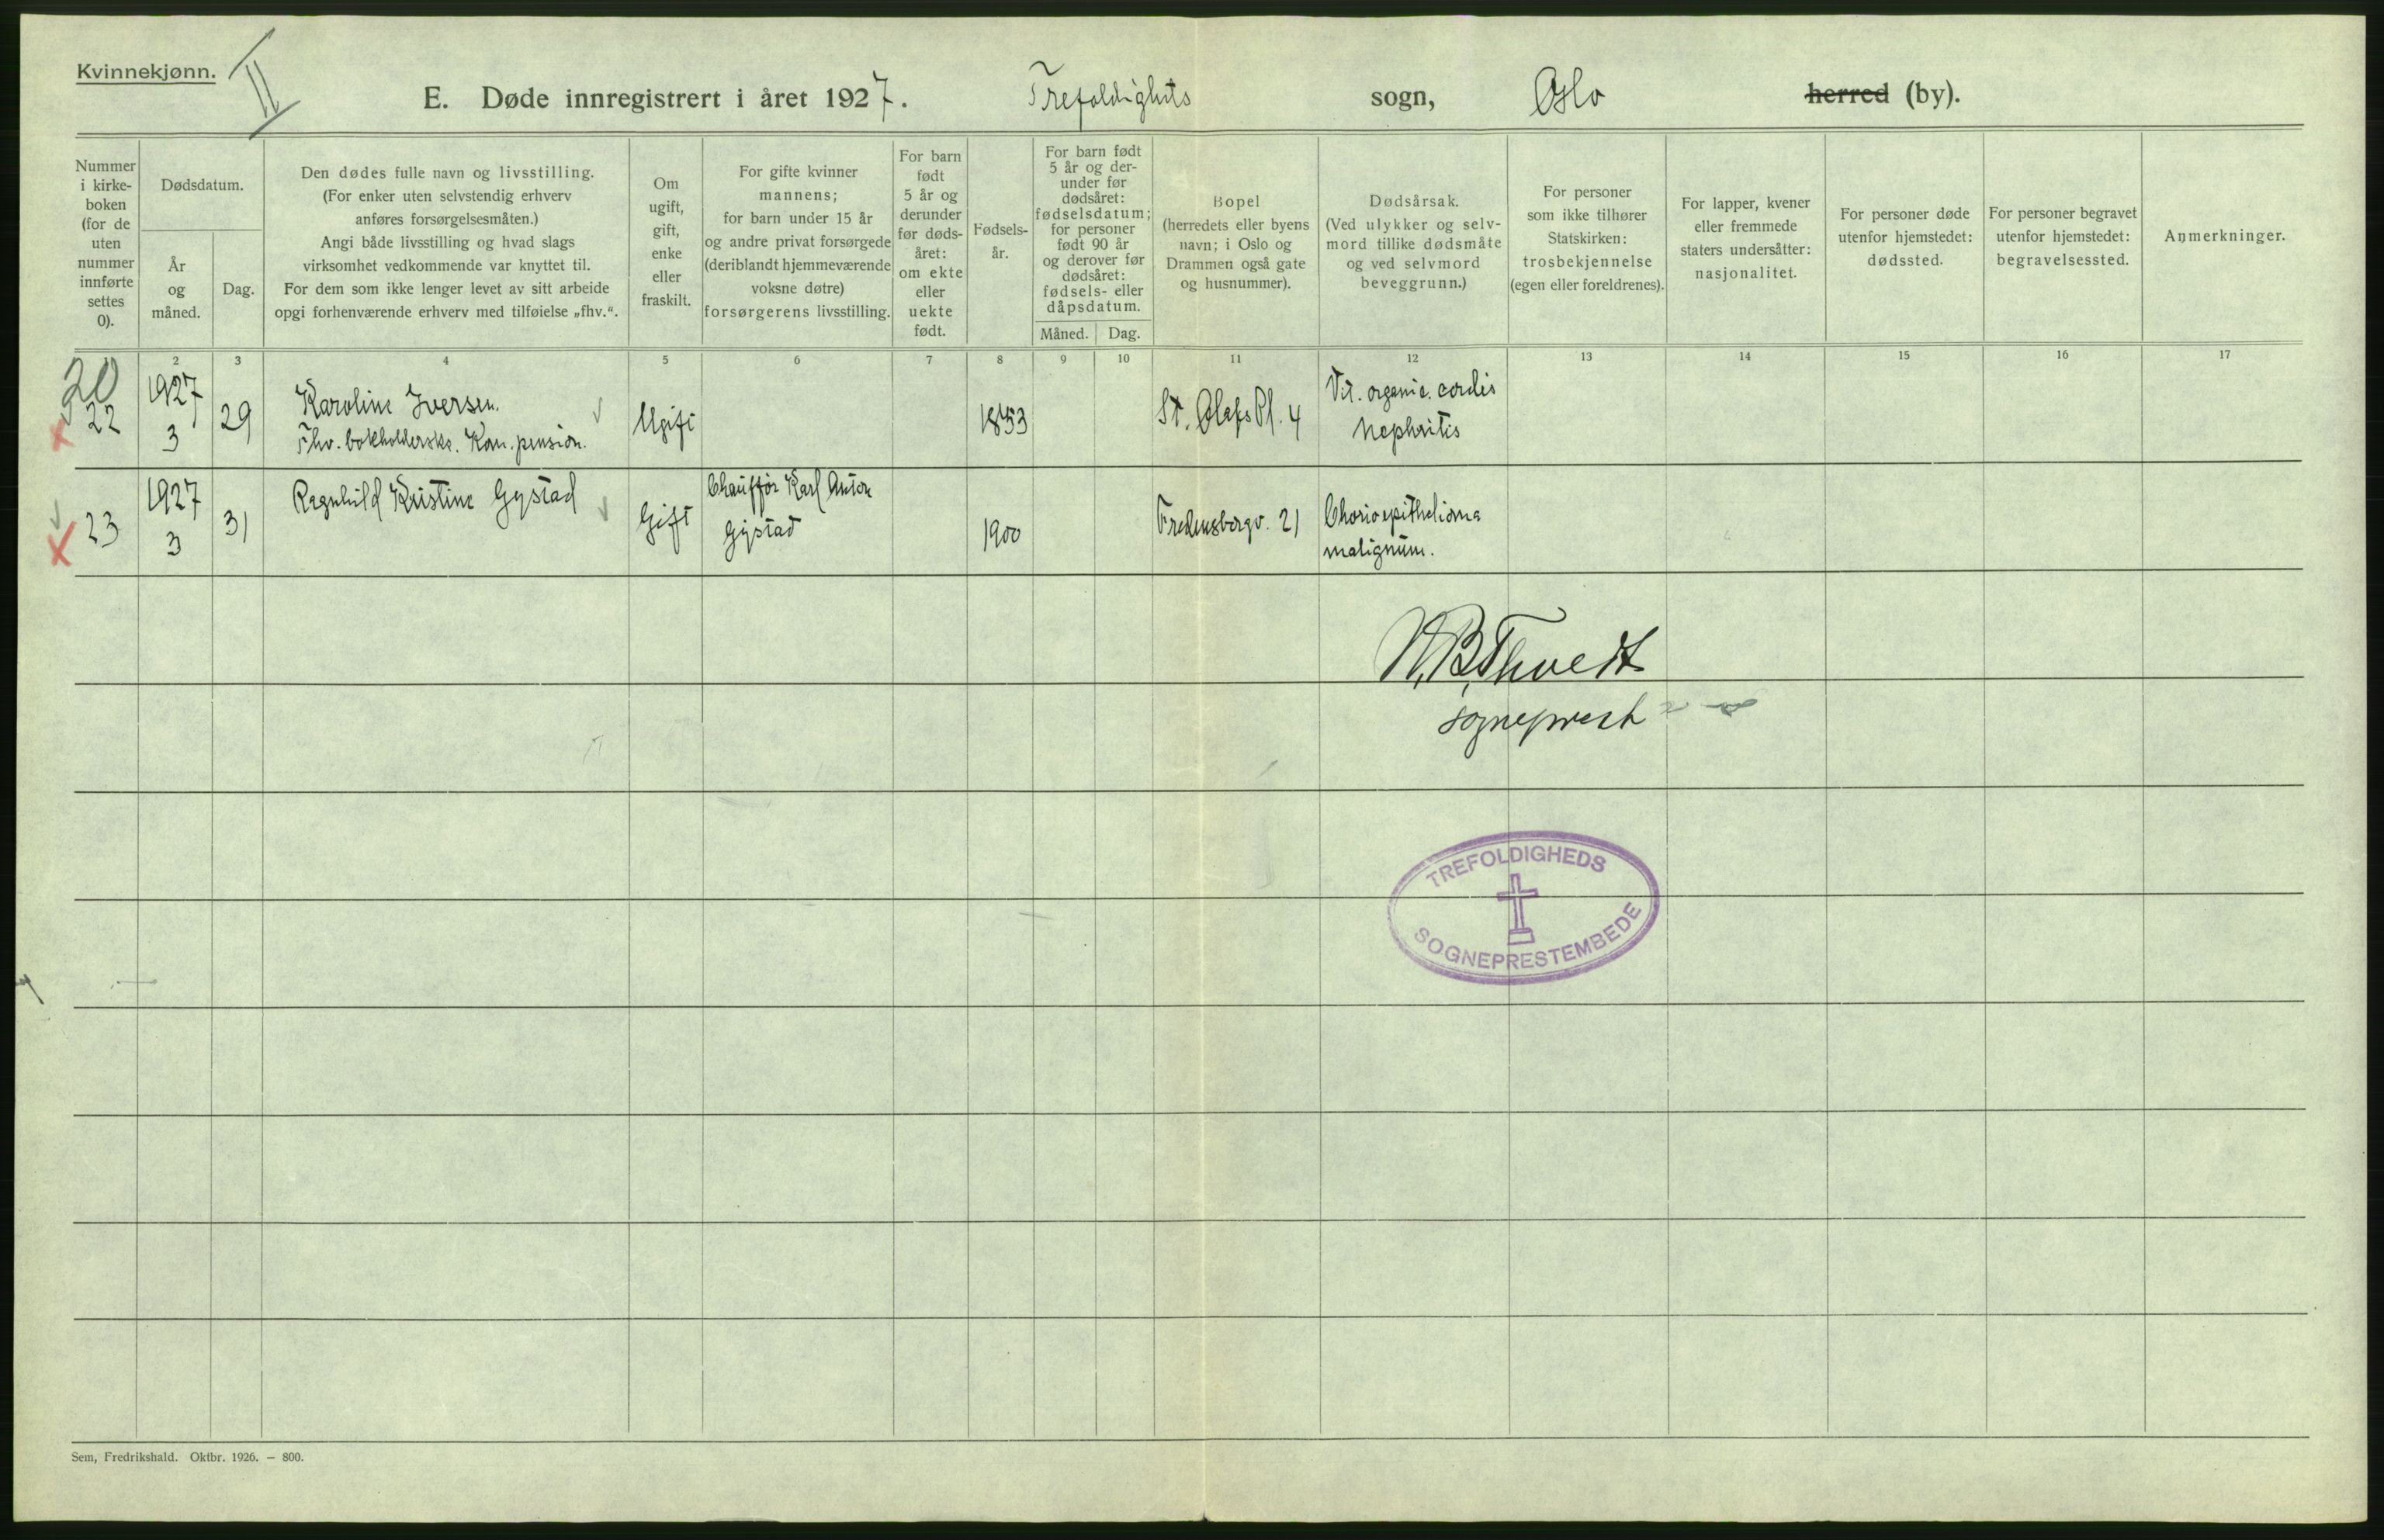 Kvinnekjønn.
II
E. Døde innregistrert i året 1927.
Trefoldighets sogn, Oslo herred (by).
Nummer
i kirke-
boken
(for de
uten
nummer
innførte
settes
0).
Dødsdatum.
År
og
måned.
Dag.
Den dødes fulle navn og livsstilling.
(For enker uten selvstendig erhverv
anføres forsørgelsesmåten.)
Angi både livsstilling og hvad slags
virksomhet vedkommende var knyttet til.
For dem som ikke lenger levet av sitt arbeide
opgi forhenværende erhverv med tilføielse „fhv.“.
Om
ugift,
gift,
enke
eller
fraskilt.
For gifte kvinner
mannens;
for barn under 15 år
og andre privat forsørgede
(deriblandt hjemmeværende
voksne døtre)
forsørgerens livsstilling.
For barn
født
5 år og
derunder
før døds-
året:
om ekte
eller
uekte
født.
Fødsels-
år.
For barn født
5 år og der-
under før
dødsåret:
fødselsdatum;
for personer
født 90 år
og derover før
dødsåret:
fødsels- eller
dåpsdatum.
Måned. Dag.
Bopel
(herredets eller byens
navn; i Oslo og
Drammen også gate
og husnummer).
Dødsårsak.
(Ved ulykker og selv-
mord tillike dødsmåte
og ved selvmord
beveggrunn.)
For personer
som ikke tilhører
Statskirken:
trosbekjennelse
(egen eller foreldrenes).
For lapper, kvener
eller fremmede
staters undersåtter:
nasjonalitet.
For personer døde
utenfor hjemstedet:
dødssted.
For personer begravet
utenfor hjemstedet:
begravelsessted.
Anmerkninger.
1 2 3 4 5 6 7 8 9 10 11 12 13 14 15 16 17
20
22
1927
3
29
Karoline Iversen.
Fhv. bokholderske. Kom. pension.
Ugift
1853
St. Olafs Pl. 4
Vit. organic. cordis
Nephritis
23
1927
3
31
Ragnhild Kristine Gystad
Gift
Chauffør Karl Anton
Gystad
1900
Fredensborgv. 21
Chorioepithelioma
malignum.
N.B. Thvedt
sogneprest
TREFOLDIGHEDS
SOGNEPRESTEMBEDE
Sem, Fredrikshald. Oktbr. 1926. — 800.